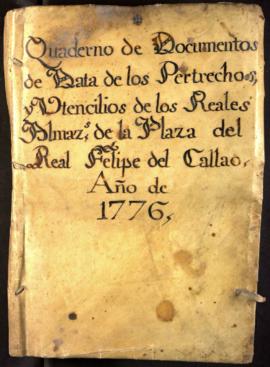 Quaderno de Documentos
de Data de los Pertrechos,
y Vtencilios de los Reales
Almaz.s de la Plaza del
Real Felipe del Callao,
Año de
1776,